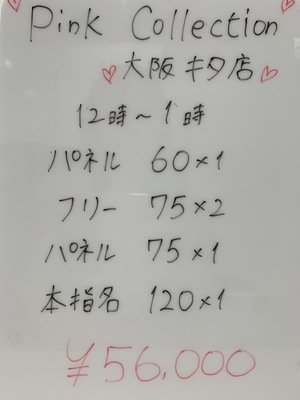 Pink Collection
大阪キタ店
12時～1時
パネル 60×1
フリー 75×2
パネル 75×1
本指名 120×1
¥56,000